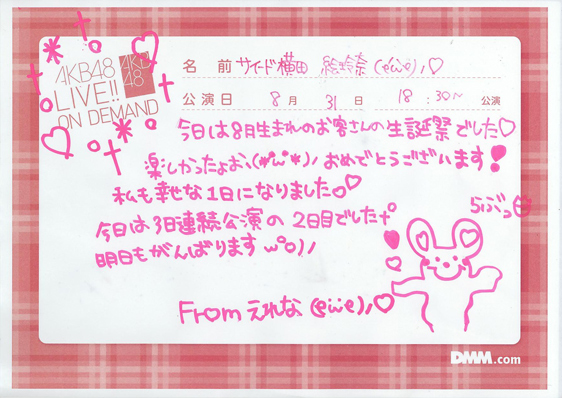 AKB48
LIVE!!
ON DEMAND
AKB
48
名 前 サイード横田 絵玲奈(eωe)ノ♡
公演日 8月 31日 18:30~ 公演
今日は8月生まれのお客さんの生誕祭でした♡
楽しかったよぉ、(*'ω'*)ノ おめでとうございます!
私も幸せな1日になりました♡♡
今日は3日連続公演の2日目でした
明日もがんばります
らぶっ
From えれな (eωe)ノ♡
DMM.com